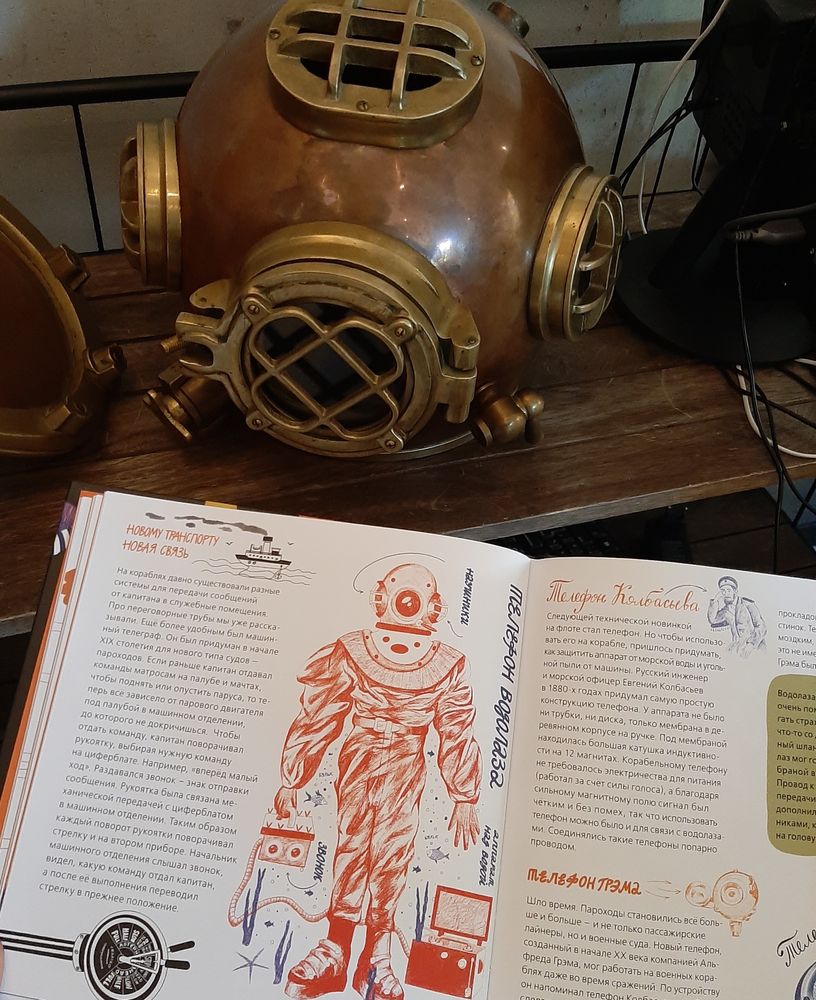 НОВОМУ ТРАНСПОРТУ
НОВАЯ СВЯЗЬ
На кораблях давно существовали разные
системы для передачи сообщений
от капитана в служебные помещения.
Про переговорные трубы мы уже расска-
зывали. Ещё более удобным был машин-
ный телеграф. Он был придуман в начале
XIX столетия для нового типа судов –
пароходов. Если раньше капитан отдавал
команды матросам на палубе и мачтах,
чтобы поднять или опустить паруса, то те-
перь всё зависело от парового двигателя
под палубой в машинном отделении,
до которого не докричишься. Чтобы
отдать команду, капитан поворачивал
рукоятку, выбирая нужную команду
на циферблате. Например, «вперёд малый
ход». Раздавался звонок – знак отправки
сообщения. Рукоятка была связана ме-
ханической передачей с циферблатом
в машинном отделении. Таким образом
каждый поворот рукоятки поворачивал
стрелку и на втором приборе. Начальник
машинного отделения слышал звонок,
видел, какую команду отдал капитан,
а после её выполнения переводил
стрелку в прежнее положение.
НАУШНИКИ
ТЕЛЕФОН ВОДОЛАЗА
ЗВОНОК
НАД ВОДОЙ
Телефон Колбасьева
Следующей технической новинкой
на флоте стал телефон. Но чтобы использо-
вать его на корабле, пришлось придумать,
как защитить аппарат от морской воды и уголь-
ной пыли от машины. Русский инженер
и морской офицер Евгений Колбасьев
в 1880-х годах придумал самую простую
конструкцию телефона. У аппарата не было
ни трубки, ни диска, только мембрана в де-
ревянном корпусе на ручке. Под мембраной
находилась большая катушка индуктивно-
сти на 12 магнитах. Корабельному телефону
не требовалось электричества для питания
(работал за счёт силы голоса), а благодаря
сильному магнитному полю сигнал был
чётким и без помех, так что использовать
телефон можно было и для связи с водолаза-
ми. Соединялись такие телефоны попарно
проводом.
ТЕЛЕФОН ГРЭМА
Шло время. Пароходы становились всё боль-
ше и больше – и не только пассажирские
лайнеры, но и военные суда. Новый телефон,
созданный в начале XX века компанией Аль-
фреда Грэма, мог работать на военных кора-
блях даже во время сражений. По устройству
он напоминал телефон
проклад
стинок. Те
моздким.
это не име
Грэма был
Водолаза
очень пом
гать стра
что-то со
ный шлан
лаз мог го
браной в
Провод к
передачи
дополнил
никами, к
на голову